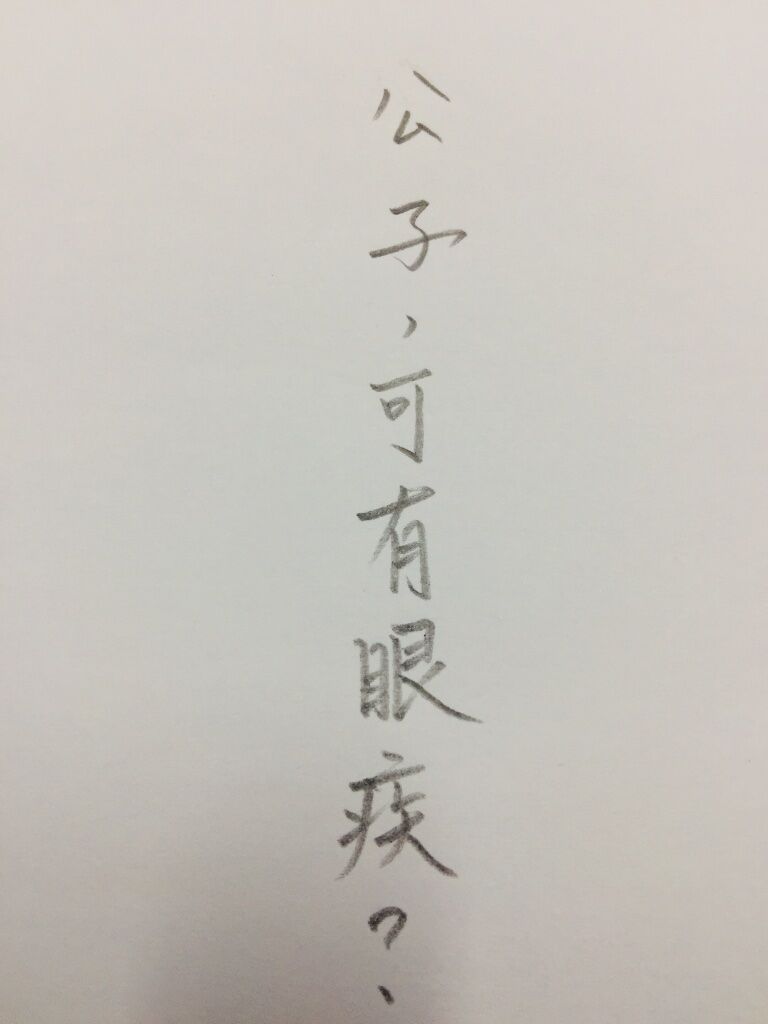 公子，可有眼疾？